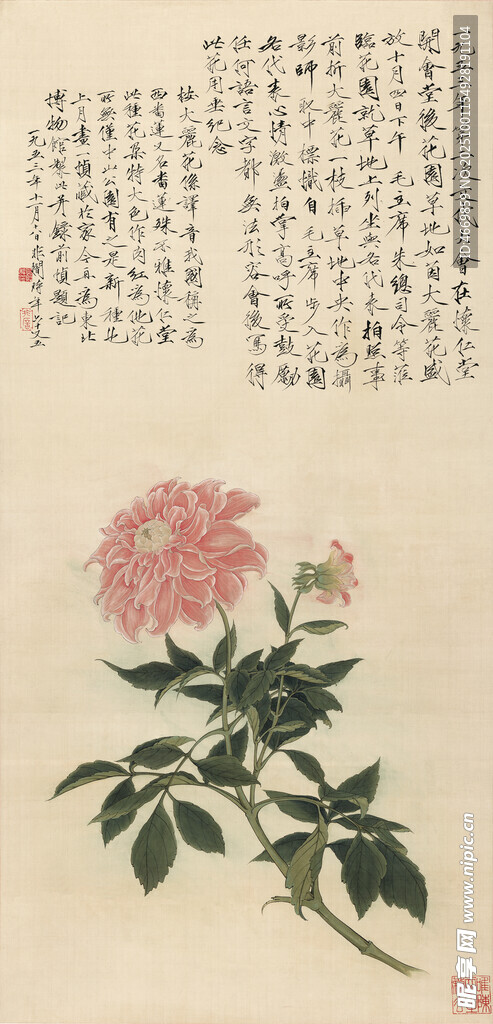 開會堂後花園草地如茵大麗花盛
放十月四日下午 毛主席朱總司令等蒞
臨花園就草地上列坐與各代表拍照事
前折大麗花一枝插草地中央作為攝
影師取中標識自毛主席步入花園
各代表心情激盪拍掌高呼所受鼓勵
任何語言文字都無法形容會後寫得
此花用坐紀念
按大麗花係譯音我國稱之為
西番蓮又名番蓮殊不雅懷仁堂
此種花朵特大色作肉紅為他花
所無僅中山公園有之是新種也
上月畫一幀藏於家今再為東北
博物館製此并錄前幀題記
一九五三年十一月六日非闇時年六十又五
ID:4669858 NO:20251001154928191104
昵享网 www.nipic.cn